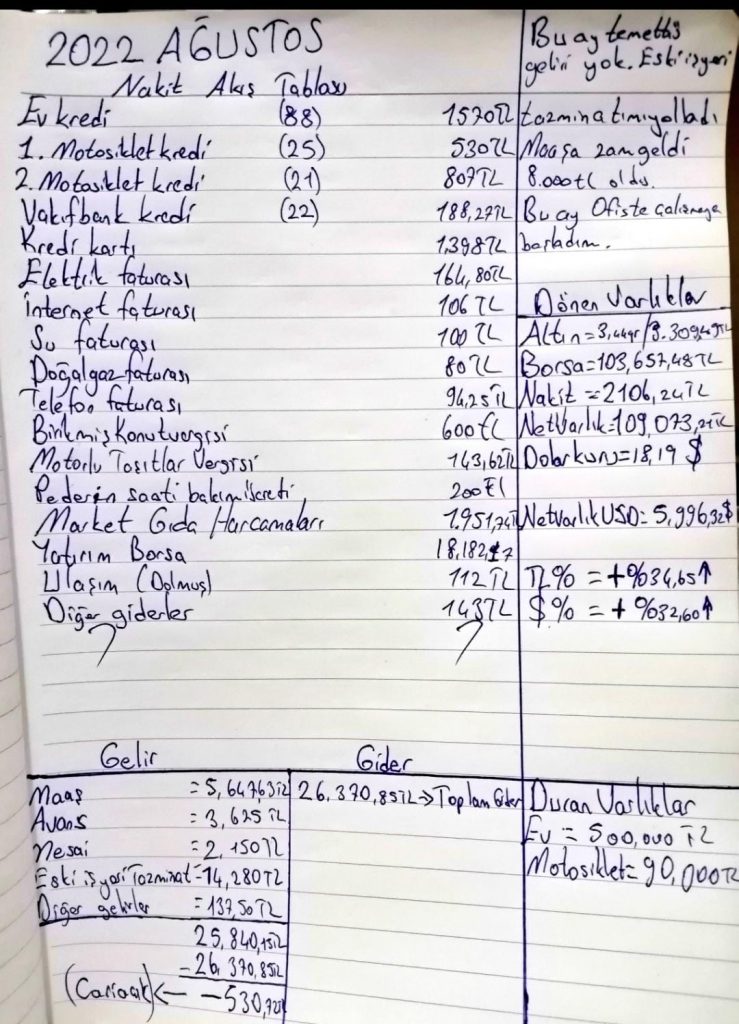 2022 AĞUSTOS
Nakit Akış Tablosu
Ev kredi (88) 1520TL
1. Motosiklet kredi (25) 530TL
2. Motosiklet kredi (21) 807TL
Vakıfbank kredi (22) 188,27TL
Kredi kartı 1398TL
Elektrik faturası 164,80TL
internet faturası 106 TL
Su faturası 100 TL
Doğalgaz faturası 80TL
Telefon faturası 94,25TL
Birikmiş Konut vergisi 600TL
Motorlu Taşıtlar Vergisi 143,62TL
Pederin saati bakım ücreti 200TL
Market Gıda Harcamaları 1.951,74TL
Yatırım Borsa 18,182,17
Ulaşım (Dolmuş) 112TL
Diğer giderler 143TL
Bu ay temettü
geliri yok. Eski işyeri
tazminatımı yolladı
Maaşa zam geldi
8.000tl oldu.
Bu ay Ofiste çalışmaya
başladım.
Dönen Varlıklar
Altın=3,44gr/3.309,49TL
Borsa=103,657,48TL
Nakit =2106,24TL
NetVarlık=109,073,21TL
Dolar kuru=18,19 $
NetvarlıkUSD=5,996,32$
TL% = +%34,65↑
$% = +%32,60↑
Gelir
Maaş =5,647,63TL
Avans =3,625TL
Mesai =2,150TL
Eski işyeri Tazminat=14,280TL
Diğer gelirler =137,50TL
25,840,13TL
-26,370,85TL
(Cari açık)← -530,72TL
Gider
26,370,85TL→Toplam Gider
Duran Varlıklar
Ev = 500,000 TL
Motosiklet=90,000TL